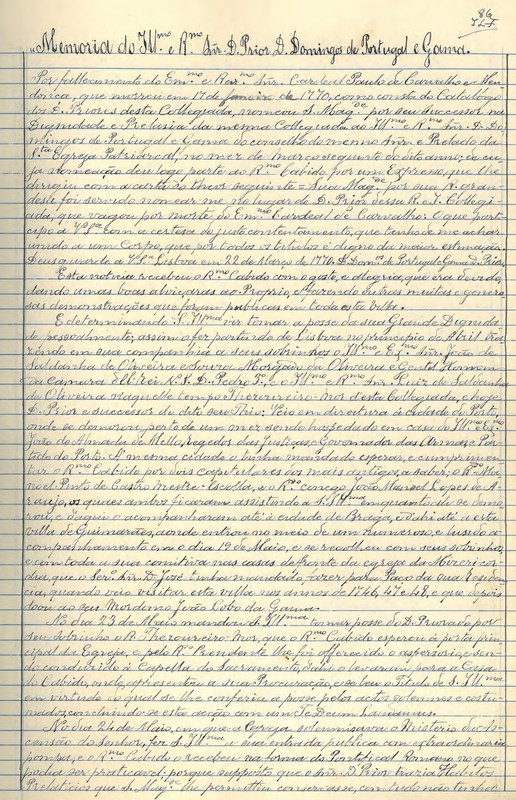 86
Memoria do Ill.mo e R.mo Snr. D. Prior D. Domingos de Portugal e Gama.
Por fallecimento do Em.mo e Rev.mo Snr. Cardeal Paulo de Carvalho e Men-
donça, que morreu em 17 de janeiro de 1770, como consta do Catalogo
dos E. Priores desta Collegiada, nomeou S. Mag.de por seu successor na
Dignidade e Prelasia da mesma Collegiada ao Ill.mo e R.mo Snr. D. Do-
mingos de Portugal e Gama do conselho do mesmo Snr. e Prelado da
S.ta Egreja Patriarcal, no mez de março seguinte do dito anno; de cu-
ja nomeação deu logo parte ao R.mo Cabido por um Expresso, que lhe
dirigiu com a carta do theor seguinte = Sua Mag.de por sua R. gran-
deza foi servido nomear-me no lugar de D. Prior dessa R. I. Collegi-
ada, que vagou por morte do Em.mo Cardeal de Carvalho: O que parti-
cipo a V.S.as com a certesa do justo contentamento, que tenho de me achar
unido a um Corpo, que por todos os titulos é digno da maior estimação.
Deus guarde a V.S.as Lisboa em 22 de Março de 1770. D. Dom.os de Portugal Gama D. Prior.
Esta noticia recebeu o R.mo Cabido com o gosto, e alegria, que era devida,
dando umas boas alviçaras ao Proprio, e fazendo outras muitas e genero-
sas demonstrações que foram publicas em toda esta Villa.
E determinando S. Ill.ma vir tomar a posse da sua Grande Dignida-
de pessoalmente, assim o fez partindo de Lisboa no principio de Abril tra-
zendo em sua companhia a seus sobrinhos o Ill.mo e Ex.mo Snr. João de
Saldanha de Oliveira e Sousa, Morgado da Oliveira e Gentil Homem
da Camara d'El-Rei N. S. D. Pedro 3.º, e o Ill.mo e R.mo Snr. Luiz de Saldanha
de Oliveira n'aquelle tempo Thezoureiro-Mor desta Collegiada, e hoje
D. Prior e successor do dito seu Thio: Veio em directura á cidade do Porto,
onde se demorou perto de um mez sendo hospedado em casa do Ill.mo e Ex.mo
João de Almada de Mello, regedor das Justiças e Governador das Armas e Par-
tido do Porto. A' mesma cidade o tinha mandado esperar, e cumprimen-
tar o R.mo Cabido por dois capitulares dos mais antigos, a saber, o R.do Ma-
noel Pinto de Castro mestre-Escolla, e o R.do conego João Manoel Lopes de A-
raujo, os quaes ambos ficaram assistindo a S. Ill.ma emquanto ali se demo-
rou; e d'aqui o acompanharam até á cidade de Braga, e d'ahi até a esta
villa de Guimarães, aonde entrou no meio de um numeroso, e lusido a-
companhamento em o dia 19 de Maio, e se recolheu com seus sobrinhos,
e com toda a sua comitiva nas casas defronte da egreja da Mizericor-
dia, que o Ser.mo Snr. D. José tinha mandado fazer para Paço da sua Residen-
cia, quando veio visitar esta villa nos annos de 1746, 47 e 48, e que depois
doou ao seu Mordomo João Lobo da Gama.
No dia 23 de Maio mandou S. Ill.ma tomar posse do D. Priorado, por
seu sobrinho o R.do Thezoureiro Mor, que o R.mo Cabido esperou á porta prin-
cipal da Egreja, e pelo R.do Presidente lhe foi offerecido o aspersorio, e sen-
do conduzido á Capella do Sacramento, d'ahi o levaram para a Casa
do Cabido, onde apresentou a sua Procuração, e se leu o Titulo de S. Ill.ma
em virtude do qual se lhe conferiu a posse pelos actos solemnes e costu-
mados, concluindo-se esta acção com um Te Deum Laudamus.
No dia 24 de Maio, em que a Egreja solemnisava o Misterio da As-
censão do Senhor, fez S. Ill.ma a sua entrada publica com extraordinaria
pompa, e o R.mo Cabido o recebeu na forma do Pontifical Romano no que
podia ser praticavel; porque supposto que o Snr. D. Prior trazia Habitos
Prelaticios que S. Mag.de lhe permittiu conservasse, comtudo não tinha